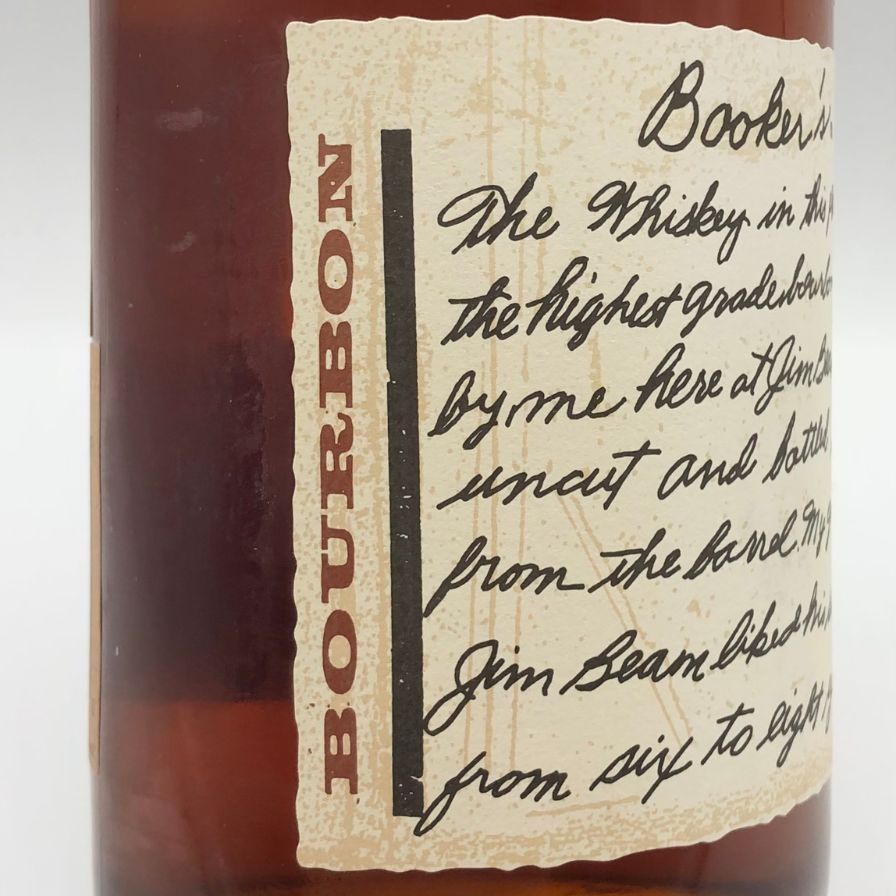 BOURBON
Booker's
The Whiskey in this
the highest grade bourbo
by me here at Jim Bea
uncut and bottled
from the barrel. My
Jim Beam liked his
from six to eight